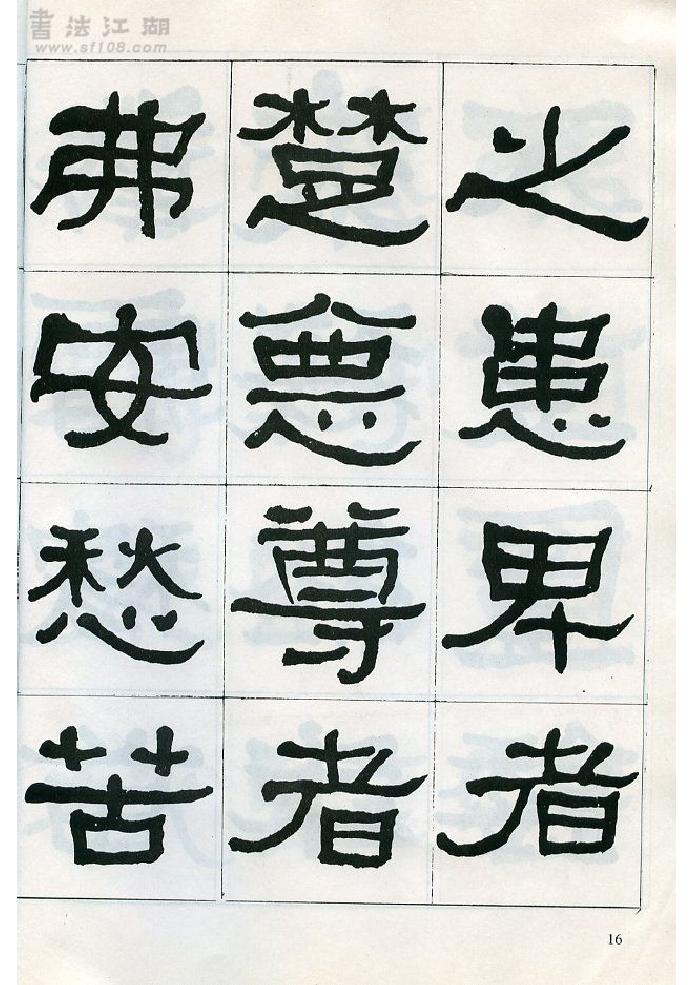 書法江湖
www.sf108.com
之患卑者
楚惡尊者
弗安愁苦
16